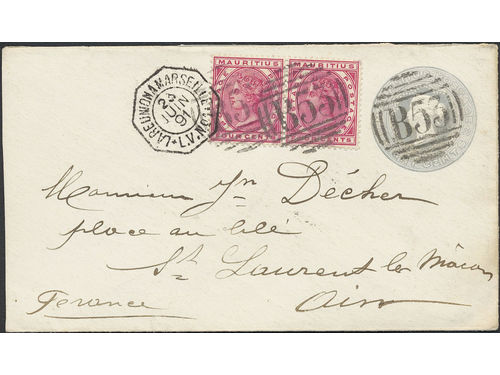 LA REUNION A MARSEILLE
L.V. Nº
24
JUIN
91
MAURITIUS MAURITIUS
POSTAGE POSTAGE
FOUR CENTS CENTS
B53 B53
Monsieur Jn Décher
place au blé
St Laurent les Mâcon
France Ain